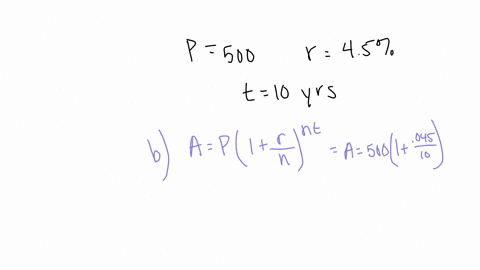 P = 500 r = 4.5%
t = 10 yrs
b) A = P(1 + r/n)^nt = A = 500(1 + .045/10)